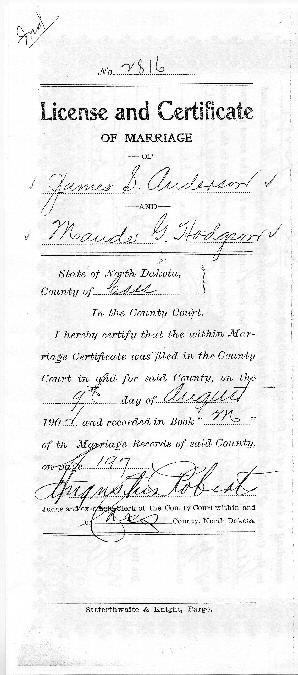 Ind
No. 2816
License and Certificate
OF MARRIAGE
—OF—
James S. Anderson
—AND—
Maude G. Hodgson
State of North Dakota,
County of Cass
In the County Court.
I hereby certify that the within Mar-
riage Certificate was filed in the County
Court in and for said County, on the
9th day of August
190 and recorded in Book "M"
of the Marriage Records of said County,
on page 197
Augustus Robert
Judge and ex-officio Clerk of the County Court within and
Cass County, North Dakota.
Satterthwaite & Knight, Fargo.